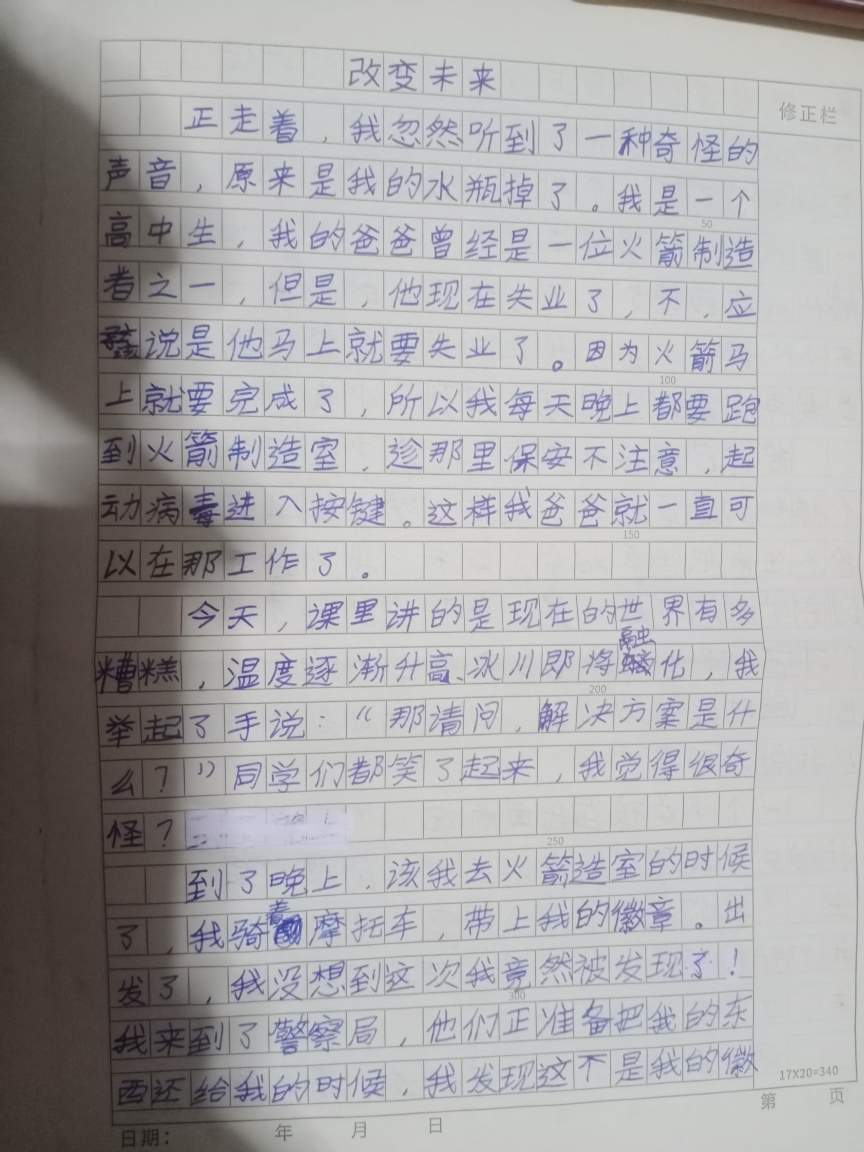 改变未来
修正栏
正走着，我忽然听到了一种奇怪的
声音，原来是我的水瓶掉了。我是一个
50
高中生，我的爸爸曾经是一位火箭制造
者之一，但是，他现在失业了，不，应
该说是他马上就要失业了。因为火箭马
100
上就要完成了，所以我每天晚上都要跑
到火箭制造室，趁那里保安不注意，起
动病毒进入按键。这样我爸爸就一直可
150
以在那工作了。
今天，课里讲的是现在的世界有多
糟糕，温度逐渐升高、冰川即将融化，我
200
举起了手说：“那请问，解决方案是什
么？”同学们都笑了起来，我觉得很奇
怪？
250
到了晚上，该我去火箭造室的时候
了，我骑着摩托车，带上我的徽章。出
发了，我没想到这次我竟然被发现了！
300
我来到了警察局，他们正准备把我的东
西还给我的时候，我发现这不是我的徽
17X20=340
第 页
日期： 年 月 日